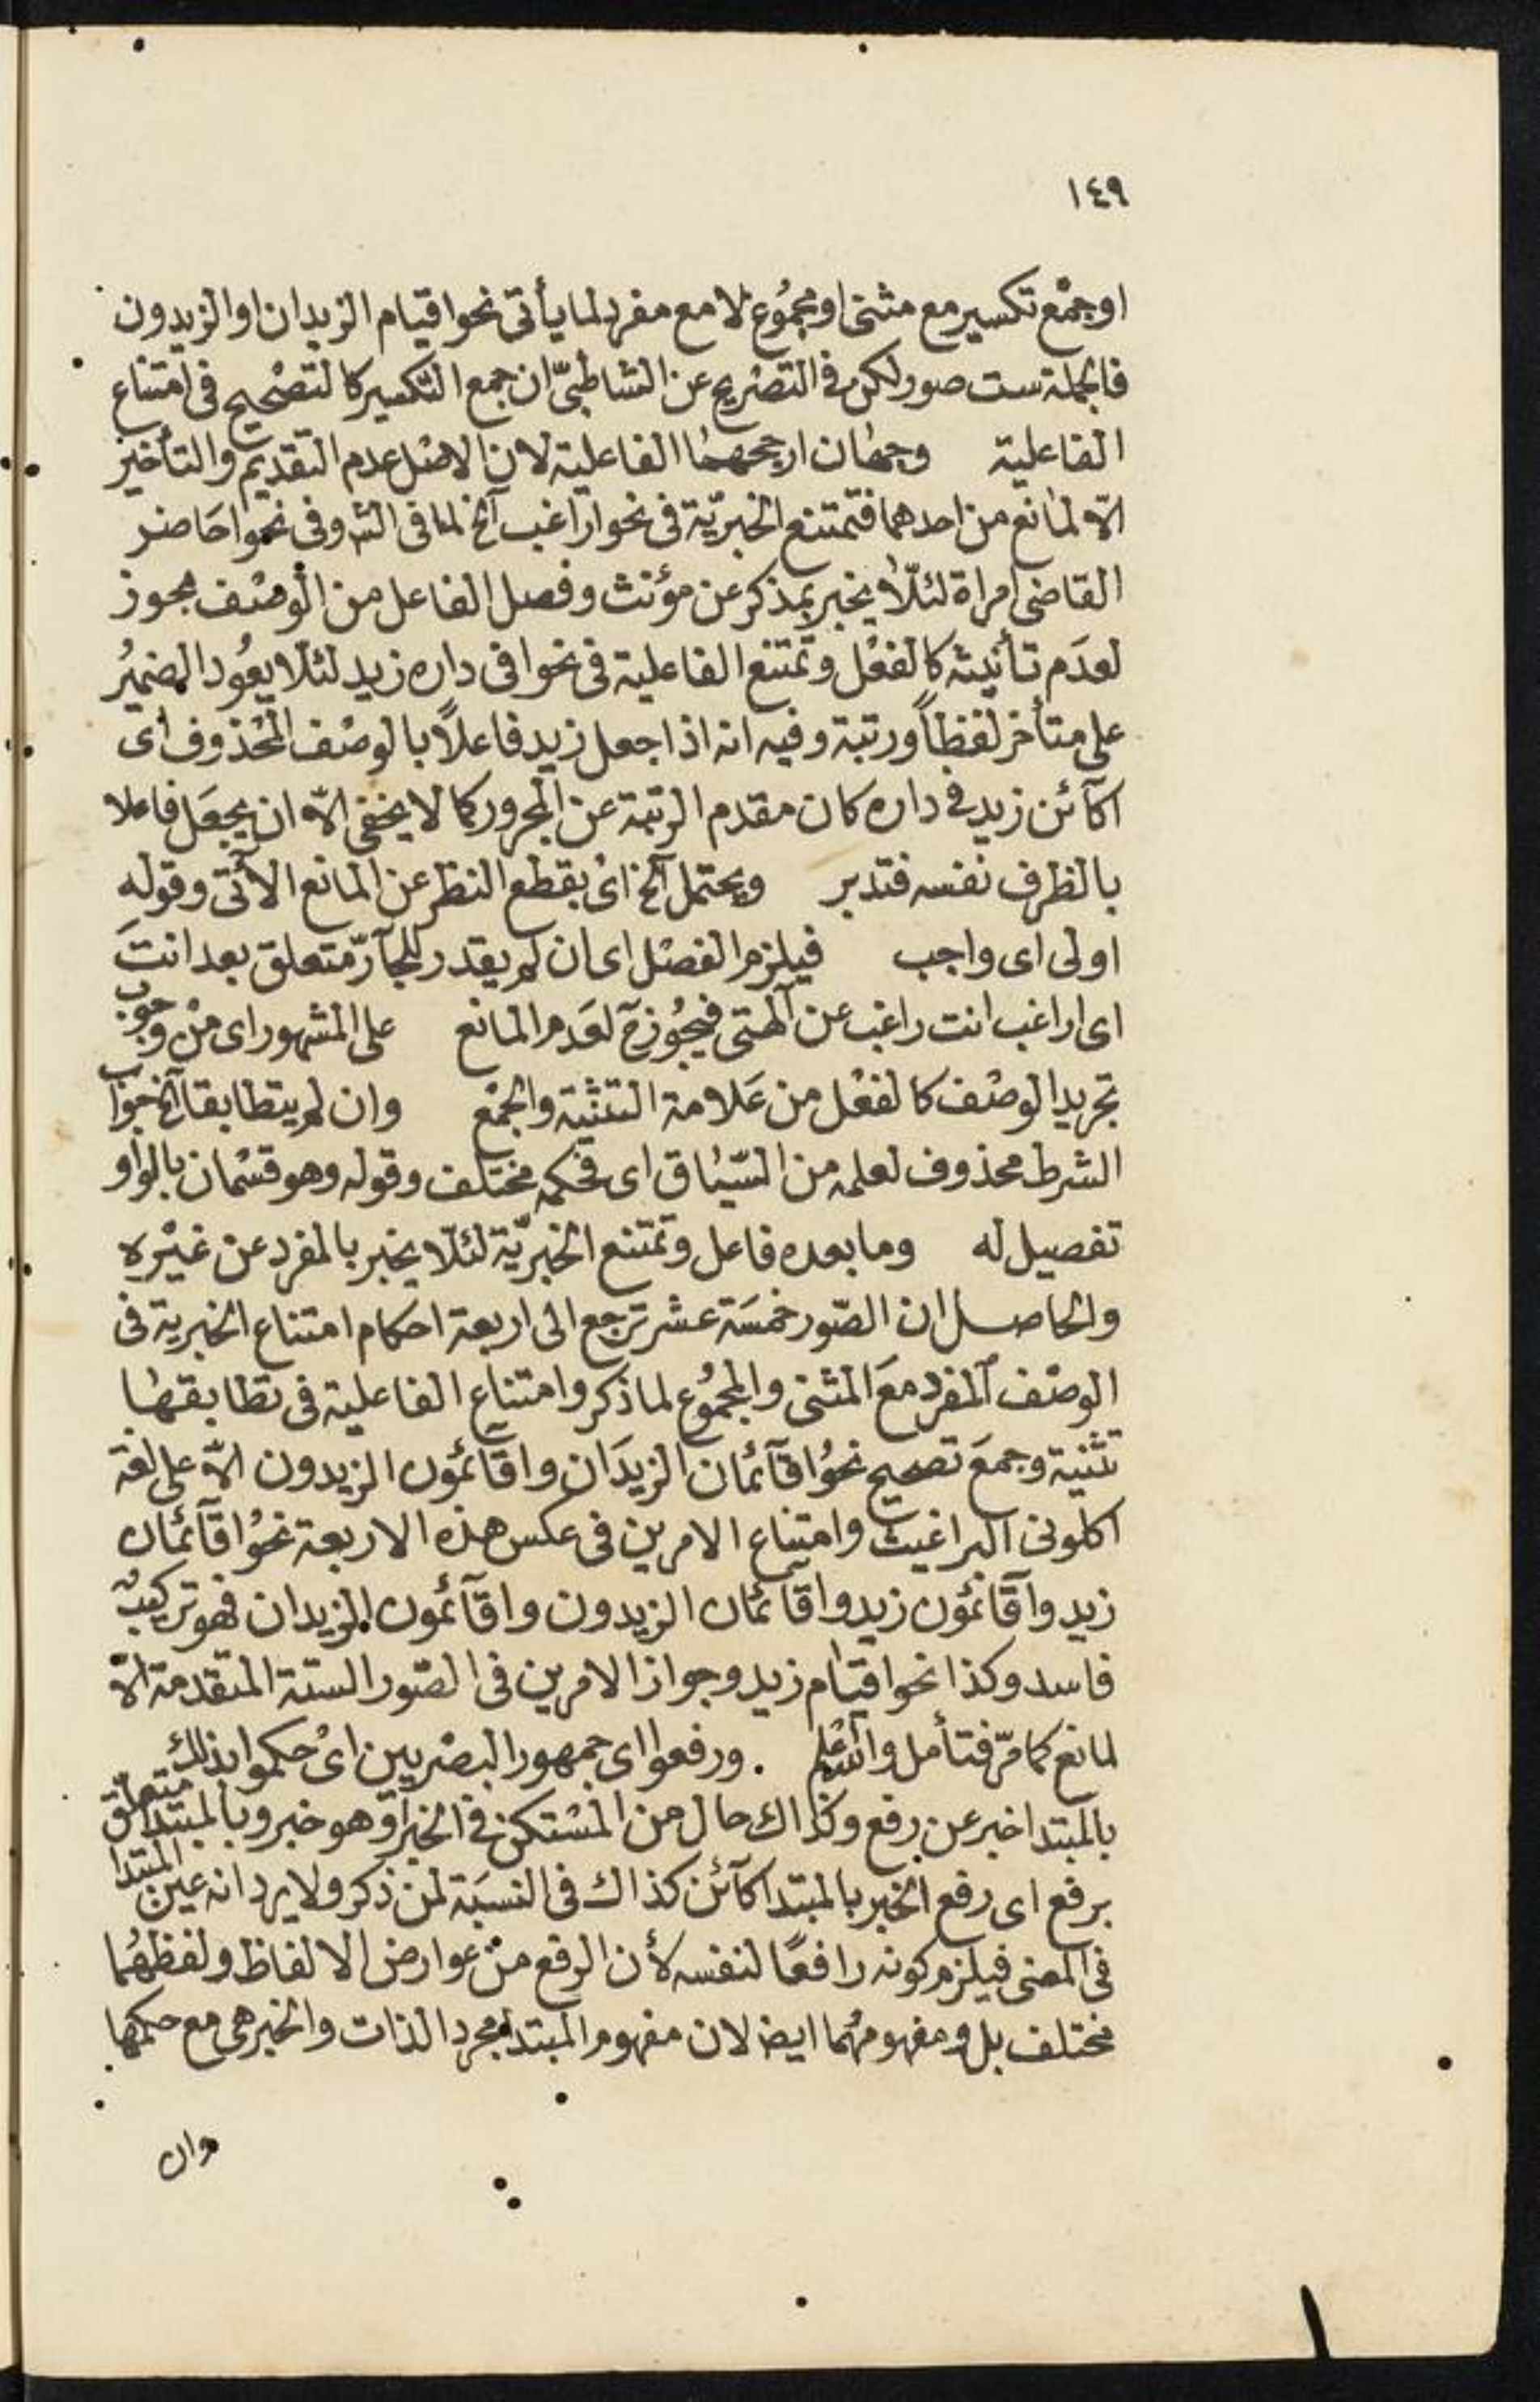 ١٤٩
اوجمْع تكسير مع مثنى او مجمُوع لا مع مفرد لما يأتى نحو اقيام الزيدان او الزيدون
فالجملة ست صور لكن فى التصْريح عن الشاطبىّ ان جمع التكسير كالتصْحيح فى امتناع
الفاعلية وجهان ارجحهما الفاعلية لان الاصْل عدم التقديم والتأخير
الّا لمانع من احدهما فتمتنع الخبريّة فى نحو اراغب آلخ لما فى الش وفى نحو احَاضر
القاضى امراة لئلّا يخبر بمذكر عن مؤنث وفصل الفاعل من الوصْف مجوز
لعدَم تأنيثه كالفعْل وتمتنع الفاعلية فى نحو افى داره زيد لئلا يعُود الضميُر
على متأخر لفظاً ورتبة وفيه انه اذا جعل زيد فاعلاً بالوصْف المحْذوف اى
اكآئن زيد فى داره كان مقدم الرتبة عن المجرور كما لا يخفى الّا ان يجعَل فاعلا
بالظرف نفسه فتدبر ويحتمل آلخ اىْ بقطع النظر عن المانع الاۤتى وقوله
اولى اى واجب فيلزم الفصْل اى ان لم يقدر للجآرّ متعلق بعد انتَ
اى اراغب انت راغب عن آلهتى فيجُوزح لعدَم المانع على المشهور اى منْ وجوب
تجريد الوصْف كالفعْل من عَلامة التثنية والجمْع وان لم يتطابقا آلخ جواب
الشرط محذوف لعلمه من السّياق اى فحكمه مختلف وقوله وهو قسْمان بالواو
تفصيل له وما بعده فاعل وتمتنع الخبريّة لئلّا يخبر بالمفرد عن غيْره
والحاصل ان الصّور خمسَة عشر ترجع الى اربعة احكام امتناع الخبرية فى
الوصْف المفرد معَ المثنى والمجمُوع لما ذكر وامتناع الفاعلية فى تطابقهما
تثنية وجمعَ تصحيح نحوُ اقآئمان الزيدَان واقآئمون الزيدون الّا على لغة
اكلونى البراغيث وامتناع الامرين فى عكس هذه الاربعة نحوُ اقآئمان
زيد واقآئمون زيد واقآئمان الزيدون واقآئمون الزيدان فهو تركيبٌ
فاسد وكذا نحو اقيام زيد وجواز الامرين فى الصّور الستة المتقدمة الّا
لمانع كما مرّ فتأمل والله اعْلم . ورفعوا اى جمهور البصْريين اىْ حكموا بذلك
بالمبتدا خبر عن رفع وكذاك حال من المسْتكن فى الخبر او هو خبر وبالمبتدا متعلق
برفع اى رفع الخبر بالمبتدا كآئن كذاك فى النسبَة لمن ذكر ولا يرد انه عين المبتدا
فى المعنى فيلزم كونه رافعًا لنفسه لأن الرفع منْ عوارض الالفاظ ولفظهُما
مختلف بل ومفهومهُما ايضا لان مفهوم المبتدا مجرد الذات والخبر هى مع حكمها
وان